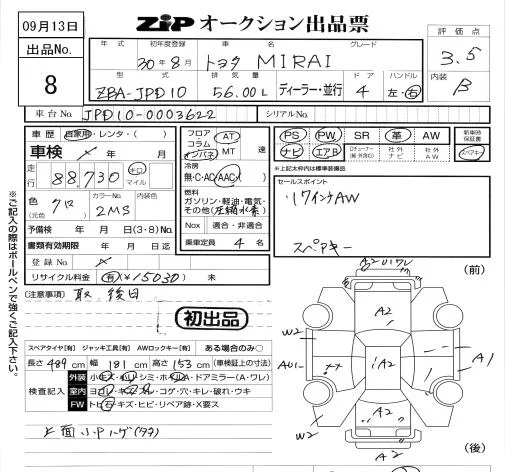 09月13日
ZIP オークション出品票
出品No.
8
年式 初年度登録 車名 グレード
30年8月 トヨタ MIRAI
型式 排気量 ディーラー・並行 ドア ハンドル
ZBA-JPD10 56.00L 4 左・右
評価点
3.5
内装
B
車台No. JPD10-0003622 シリアルNo.
車歴 自家用・レンタ・( )
車検 年 月
走行 88,730 キロ マイル
色(元色) クロ カラーNo. 2MS 内装色
予備検 年 月 日(3・8)No.
書類有効期限 年 月 日迄
登録No.
リサイクル料金 有(¥15030) 未
(注意事項) 取、後日
フロア コラム インパネ AT MT 速
冷房
無・C・AC・AAC・( )
燃料
ガソリン・軽油・電気・その他(圧縮水素)
Nox 適合・非適合
乗車定員 4 名
PS PW SR 革 AW 新車時保証書
ナビ エアB 社外ナビ 社外AW スペアキー
*上記太枠内は標準装備品
セールスポイント
17インチAW
スペアキー
初出品
スペアタイヤ[有] ジャッキ工具[有] AWロックキー[有] ある場合のみ○
長さ 489 cm 幅 181 cm 高さ 153 cm (車検証上の寸法)
検査記入
外装
室内
FW
※ご記入の際はボールペンで強くご記入下さい。
(前)
A2
W2
A1
A2
W2
A2
A2
(後)